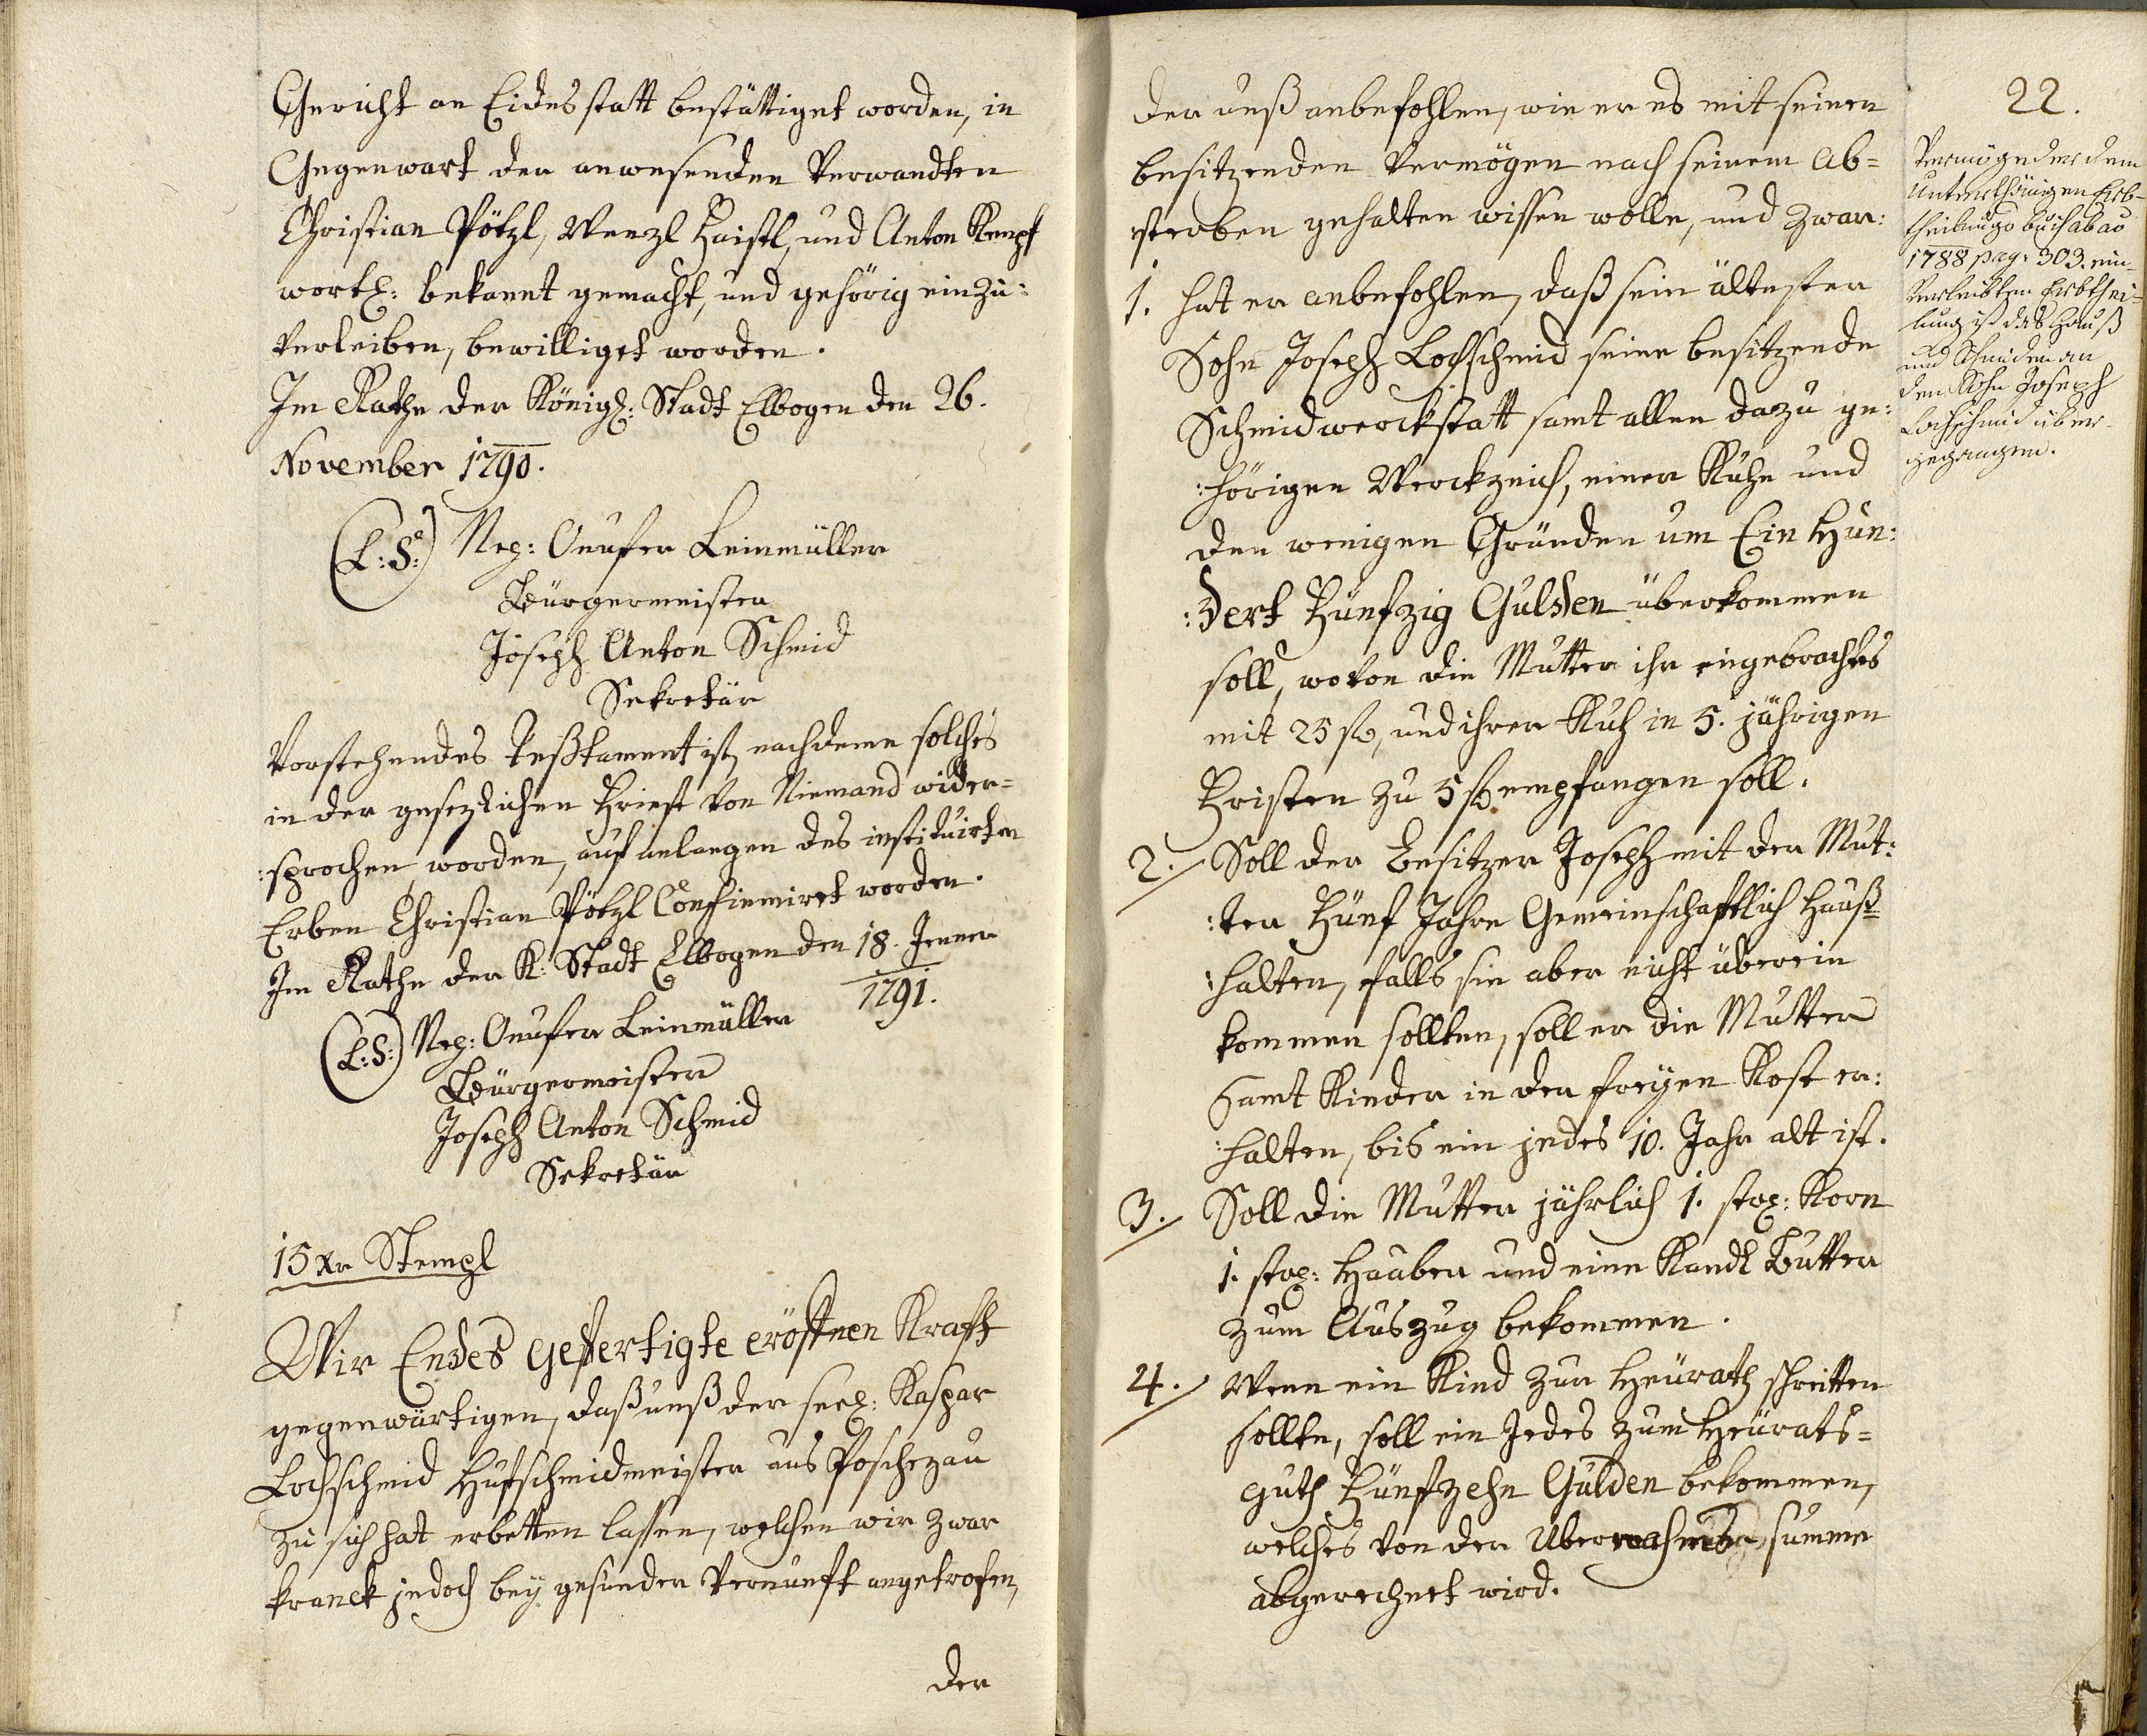 Gericht an Eides statt bestättiget worden, in
Gegenwart der anwesenden Verwandten
Christian Pötzl, Wenzl Haistl, und Anton Kempf
wortl: bekannt gemacht, und gehörig einzu:
verleiben, bewilliget worden.
Im Rathe der Königl: Stadt Elbogen den 26.
November 1790.
(L:S:) Nep: Onufer Leinmüller
Bürgermeister
Joseph Anton Schmid
Sekretär
Vorstehendes Teßtament ist, nachdeme solches
in der gesezlichen Friest von Niemand wider=
:sprochen worden, auf anlangen des instituirten
Erben Christian Pötzl Confirmiret worden.
Im Rathe der K: Stadt Elbogen den 18. Jenner
1791.
(L:S:) Nep: Onufer Leinmüller
Bürgermeister
Joseph Anton Schmid
Sekretär
15 Xr Stempl
Wir Endes gefertigte eröffnen Krafft
gegenwärtigen, daß unß der seel: Kaspar
Lochschmid Hufschmidmeister aus Poschezau
zu sich hat erbetten lassen, welchen wir zwar
kranck jedoch bey gesunder Vernunft angetrofen,
der
22.
der unß anbefohlen, wie er es mit seinen
besitzenden Vermögen nach seinem Ab=
sterben gehalten wissen wolle, und zwar:
1. hat er anbefohlen, daß sein ältester
Sohn Joseph Lochschmid seine besitzende
Schmidwerckstatt samt allen dazu ge:
:hörigen Werckzeich, einer Kuhe und
den wenigen Gründen um Ein Hun:
:dert Fünfzig Gulden überkommen
soll, wovon die Mutter ihr eingebrachtes
mit 25 fl, und ihrer Kuh in 5. jährigen
Fristen zu 5 fl empfangen soll.
2. Soll der Besitzer Joseph mit der Mut:
:ter Fünf Jahre Gemeinschafftlich Hauß=
:halten, falls sie aber nicht überein
kommen sollten, soll er die Mutter
samt Kinder in der freyen Kost er:
:halten, bis ein jedes 10. Jahr alt ist.
3. Soll die Mutter jährlich 1. stro: Korn
1. stro: Haaber und eine Kandl Butter
zum Auszug bekommen.
4. Wenn ein Kind zur Heürath schritten
sollte, soll ein Jedes zum Heürats=
guth Fünfzehn Gulden bekommen,
welches von der Uber summe
abgerechnet wird.
Vermög der dem
Unterthänigen Erb-
theilungs buch ab ao
1788 pag: 303. ein-
verleibten Erbthei-
lung ist das Hauß
und Schmiden an
den Sohn Joseph
Lochschmid über-
gegangen.